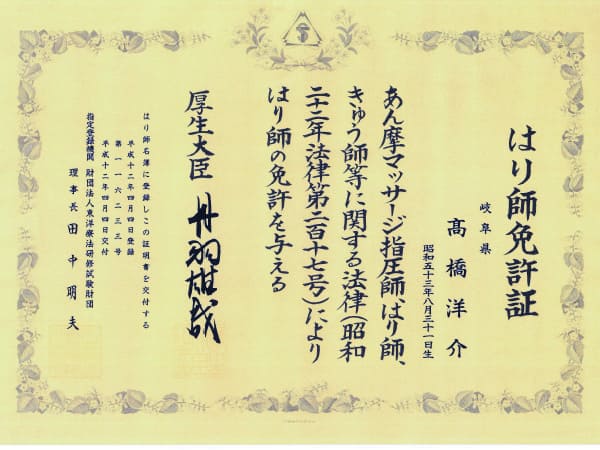 はり師免許証
岐阜県
髙橋洋介
昭和五十三年八月三十一日生
あん摩マッサージ指圧師、はり師、
きゅう師等に関する法律(昭和
二十二年法律第二百十七号)により
はり師の免許を与える
厚生大臣 丹羽雄哉
はり師名簿に登録しこの証明書を交付する
平成十二年四月四日登録
第一一六二三三号
平成十二年四月四日交付
指定登録機関 財団法人東洋療法研修試験財団
理事長 田中明夫